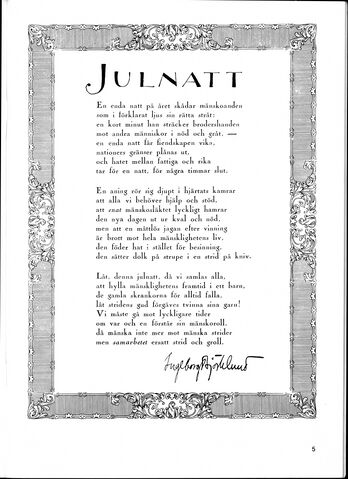 JULNATT
En enda natt på året skådar mänskoanden
som i förklarat ljus sin rätta stråt:
en kort minut han sträcker brodershanden
mot andra människor i nöd och gråt. —
en enda natt får fiendskapen vika,
nationers gränser plånas ut,
och hatet mellan fattiga och rika
tas för en natt, för några timmar slut.
En aning rör sig djupt i hjärtats kamrar
att alla vi behöver hjälp och stöd,
att snat mänskosläktet lyckligt hamrar
den nya dagen ut ur kval och nöd,
men att en måttlös jagan efter vinning
är brott mot hela mänsklighetens liv,
den föder hat i stället för besinning,
den sätter dolk på strupe i en strid på kniv.
Låt, denna julnatt, då vi samlas alla,
att hylla mänsklighetens framtid i ett barn,
de gamla skrankorna för alltid falla,
låt stridens gud förgäves tvinna sina garn!
Vi måste gå mot lyckligare tider
om var och en förstår sin mänskoroll,
då mänska inte mer mot mänska strider
men samarbetet ersatt strid och groll.
Ingeborg Björklund
5